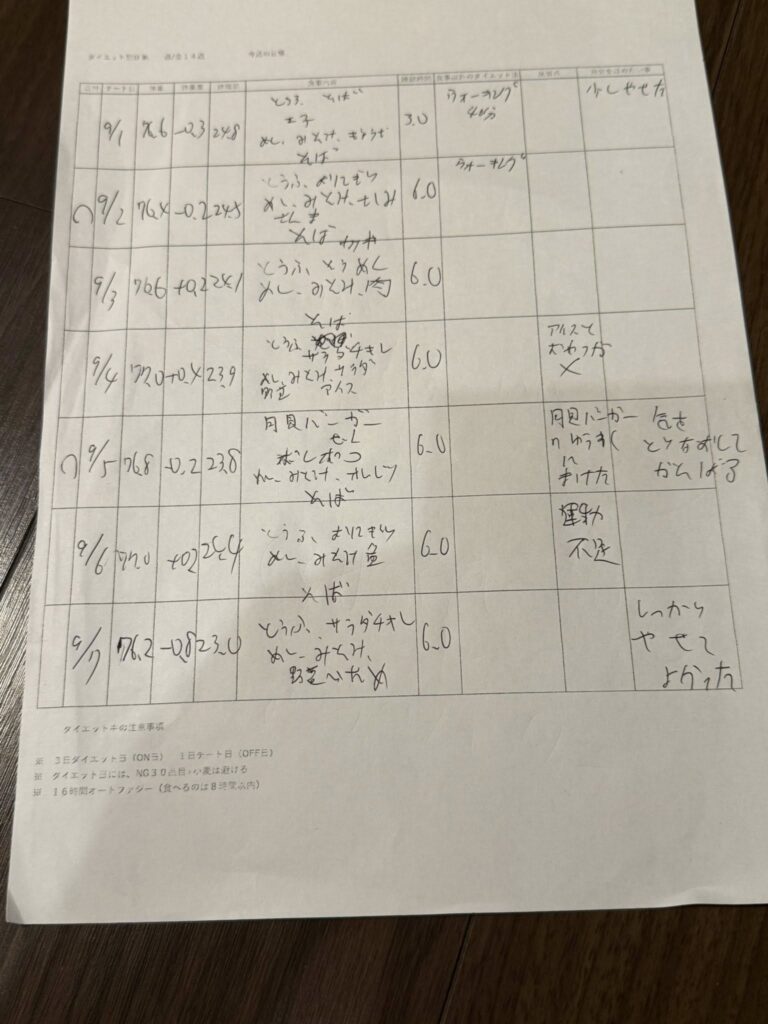 ダイエット
今週の目標
体重 体重差 体脂肪 食事内容 睡眠時間 食事以外のダイエット 反省点
9/1 76.6 -0.3 24.8 とうふ そば 3.0 ウォーキング 少しやせた
40分
めし、みそ汁、
そば
9/2 76.4 -0.2 24.5 とうふ、おにぎり 6.0 ウォーキング
めし、みそ汁、さしみ
さんま
そば
9/3 76.6 +0.2 24.1 とうふ、とりめし 6.0
めし、みそ汁、肉
そば
9/4 77.0 +0.4 23.9 とうふ 6.0 アイスを
サラダチキン
めし、みそ汁、サラダ ×
野菜 アイス
9/5 76.8 -0.2 23.8 月見バーガー 6.0 月見バーガー 気を
セット のゆうわく とりなおして
に がんばる
めし、みそ汁、 まけた
そば
9/6 77.0 +0.2 24.4 とうふ、おにぎり 6.0 運動
めし、みそ汁 魚 不足
そば
9/7 76.2 -0.8 23.0 とうふ、サラダチキン 6.0 しっかり
めし、みそ汁、 やせて
野菜いため よかった
ダイエット中の注意事項
※ 3日ダイエット日（ON日） 1日チート日（OFF日）
※ ダイエット日には、NG30品目・小麦は避ける
※ 16時間オートファジー（食べるのは8時間以内）